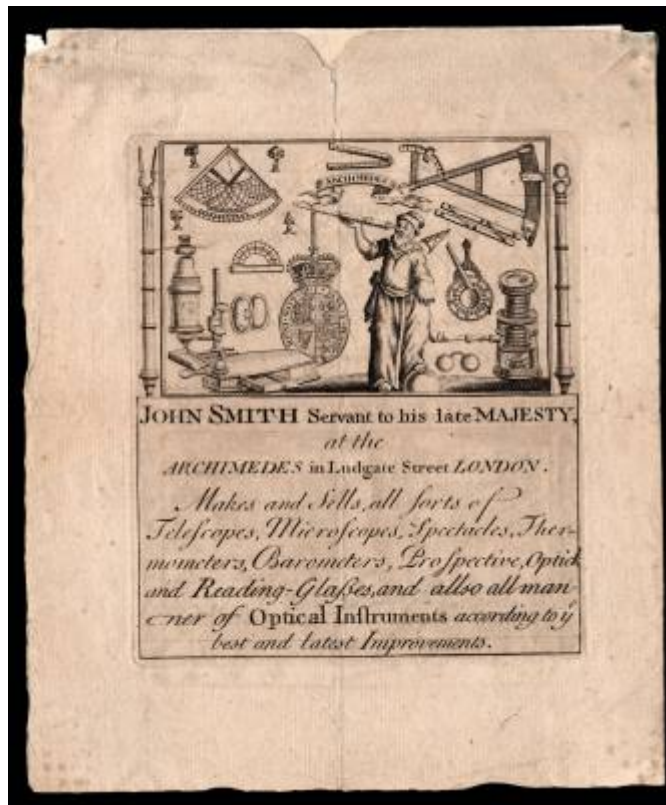 ARCHIMEDES
JOHN SMITH Servant to his late MAJESTY,
at the
ARCHIMEDES in Ludgate Street LONDON.
Makes and Sells, all sorts of
Teleſcopes, Microſcopes, Spectacles, Ther-
mometers, Barometers, Proſpective, Optick
and Reading-Glaſses, and allso all man-
ner of Optical Inſtruments according to yͤ
best and latest Improvements.